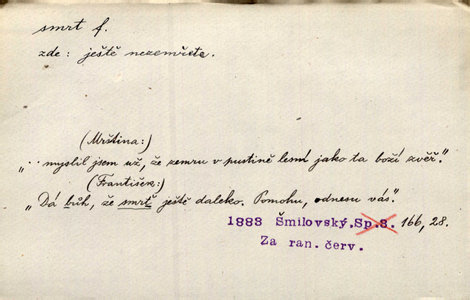 smrt f.
zde: ještě nezemřete.
(Mrština:)
„·· myslil jsem už, že zemru v pustině lesní jako ta boží zvěř."
(František:)
„Dá bůh, že smrť ještě daleko. Pomohu, odnesu vás".
1883 Šmilovský, Sp. 3. 166, 28.
Za ran. červ.